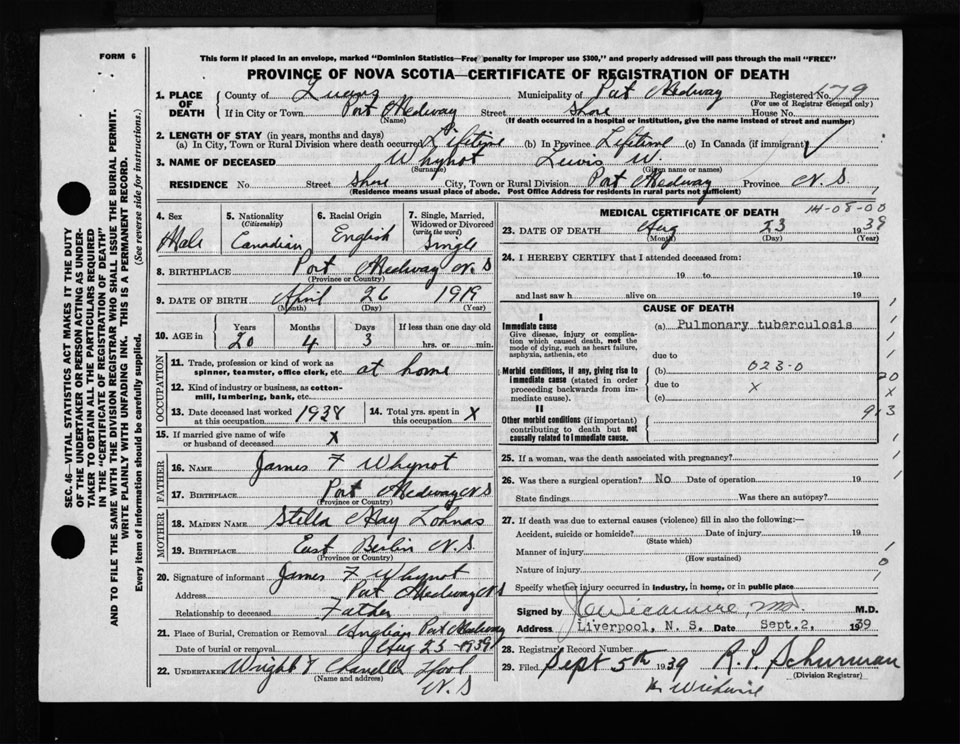 FORM 6
This form if placed in an envelope, marked "Dominion Statistics—Free penalty for improper use $300," and properly addressed will pass through the mail "FREE"
PROVINCE OF NOVA SCOTIA—CERTIFICATE OF REGISTRATION OF DEATH
SEC. 46—VITAL STATISTICS ACT MAKES IT THE DUTY
OF THE UNDERTAKER OR PERSON ACTING AS UNDER-
TAKER TO OBTAIN ALL THE PARTICULARS REQUIRED
IN THE "CERTIFICATE OF REGISTRATION OF DEATH"
AND TO FILE THE SAME WITH THE DIVISION REGISTRAR WHO SHALL ISSUE THE BURIAL PERMIT.
WRITE PLAINLY WITH UNFADING INK. THIS IS A PERMANENT RECORD.
Every item of information should be carefully supplied. (See reverse side for instructions.)
1. PLACE OF DEATH County of Queens Municipality of Port Medway Registered No. 79
(For use of Registrar General only)
If in City or Town Port Medway Street Shore House No.
(Name) (If death occurred in a hospital or institution, give the name instead of street and number)
2. LENGTH OF STAY (in years, months and days)
(a) In City, Town or Rural Division where death occurred Lifetime (b) In Province Lifetime (c) In Canada (if immigrant)
3. NAME OF DECEASED Whynot Lewis W.
(Surname) (Given name or names)
RESIDENCE No. Street Shore City, Town or Rural Division Port Medway Province N.S.
(Residence means usual place of abode. Post Office Address for residents in rural parts not sufficient)
4. Sex Male
5. Nationality (Citizenship) Canadian
6. Racial Origin English
7. Single, Married, Widowed or Divorced (write the word) Single
8. BIRTHPLACE Port Medway N.S
(Province or Country)
9. DATE OF BIRTH April 26 1919
(Month) (Day) (Year)
10. AGE in Years 20 Months 4 Days 3 If less than one day old hrs. or min.
OCCUPATION
11. Trade, profession or kind of work as spinner, teamster, office clerk, etc. at home
12. Kind of industry or business, as cotton-mill, lumbering, bank, etc.
13. Date deceased last worked at this occupation 1938 14. Total yrs. spent in this occupation X
15. If married give name of wife or husband of deceased X
FATHER
16. NAME James F Whynot
17. BIRTHPLACE Port Medway N.S
(Province or Country)
MOTHER
18. MAIDEN NAME Stella May Lohnas
19. BIRTHPLACE East Berlin N.S.
(Province or Country)
20. Signature of informant James F Whynot
Address Port Medway N S
Relationship to deceased Father
21. Place of Burial, Cremation or Removal Anglian Port Medway
Date of burial or removal Aug 25-1939
22. UNDERTAKER Wright & Chandler Lpool
(Name and address) N.S
MEDICAL CERTIFICATE OF DEATH 14-08-00
23. DATE OF DEATH Aug 23 1939
(Month) (Day) (Year)
24. I HEREBY CERTIFY that I attended deceased from:
19 to 19
and last saw h alive on 19
CAUSE OF DEATH
I
Immediate cause
Give disease, injury or complication which caused death, not the mode of dying, such as heart failure, asphyxia, asthenia, etc
(a) Pulmonary tuberculosis
due to
Morbid conditions, if any, giving rise to immediate cause (stated in order proceeding backwards from immediate cause).
(b) 023-0
due to X
(c)
20
X
913
II
Other morbid conditions (if important) contributing to death but not causally related to immediate cause.
25. If a woman, was the death associated with pregnancy?
26. Was there a surgical operation? No Date of operation 19
State findings Was there an autopsy?
27. If death was due to external causes (violence) fill in also the following:—
Accident, suicide or homicide? Date of injury 19
(State which)
Manner of injury
(How sustained)
Nature of injury
Specify whether injury occurred in industry, in home, or in public place
Signed by M.D.
Address Liverpool, N. S. Date Sept.2, 1939
28. Registrar's Record Number
29. Filed Sept 5th 1939 R.P. Schurman
(Division Registrar)